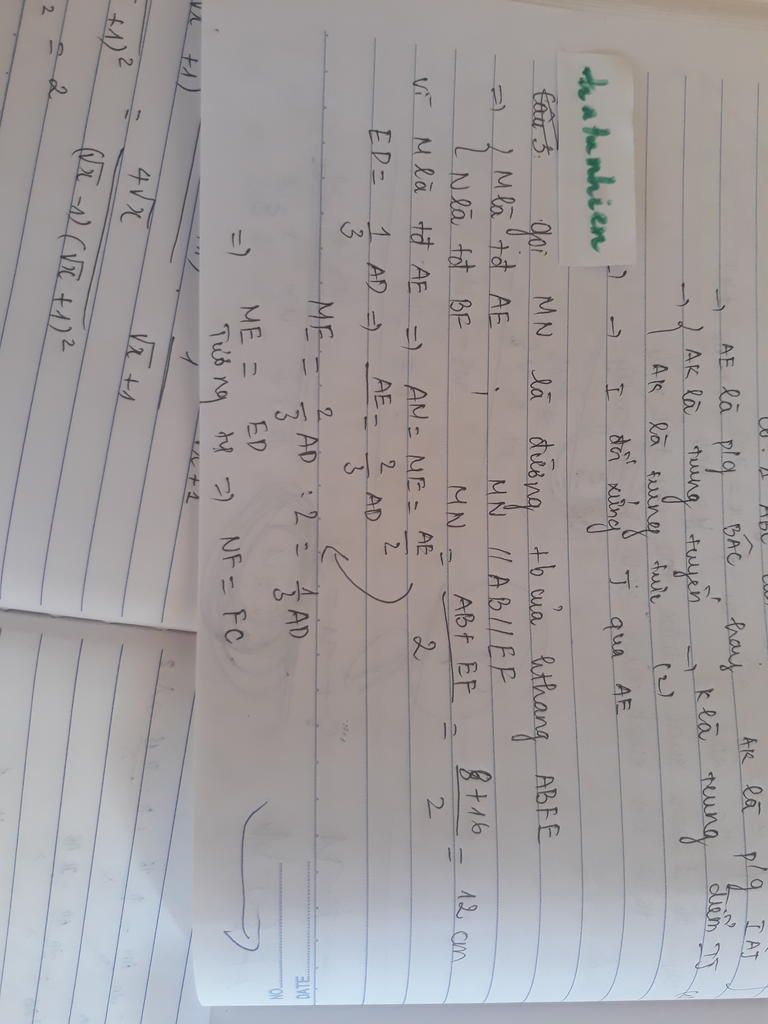 → AE là p/g BÂC hay AK là p/g IÂJ
→ { AK là trung tuyến → K là trung điểm IJ
{ AK là trung trực (2)
→ I đối xứng J qua AE
tutunhien
Câu 5. gọi MN là đường tb của hthang ABFE
=> { M là tđ AE ; MN // AB // EF
{ N là tđ BF MN = AB + EF / 2 = 8 + 16 / 2 = 12 cm
vì M là tđ AE => AM = ME = AE / 2
ED = 1/3 AD => AE = 2/3 AD
ME = 2/3 AD : 2 = 1/3 AD
=> ME = ED
Tương tự => NF = FC
NO.
DATE
√x + 1)
+1)² = 4√x
² = 2
(√x - 1)(√x + 1)²
√x + 1